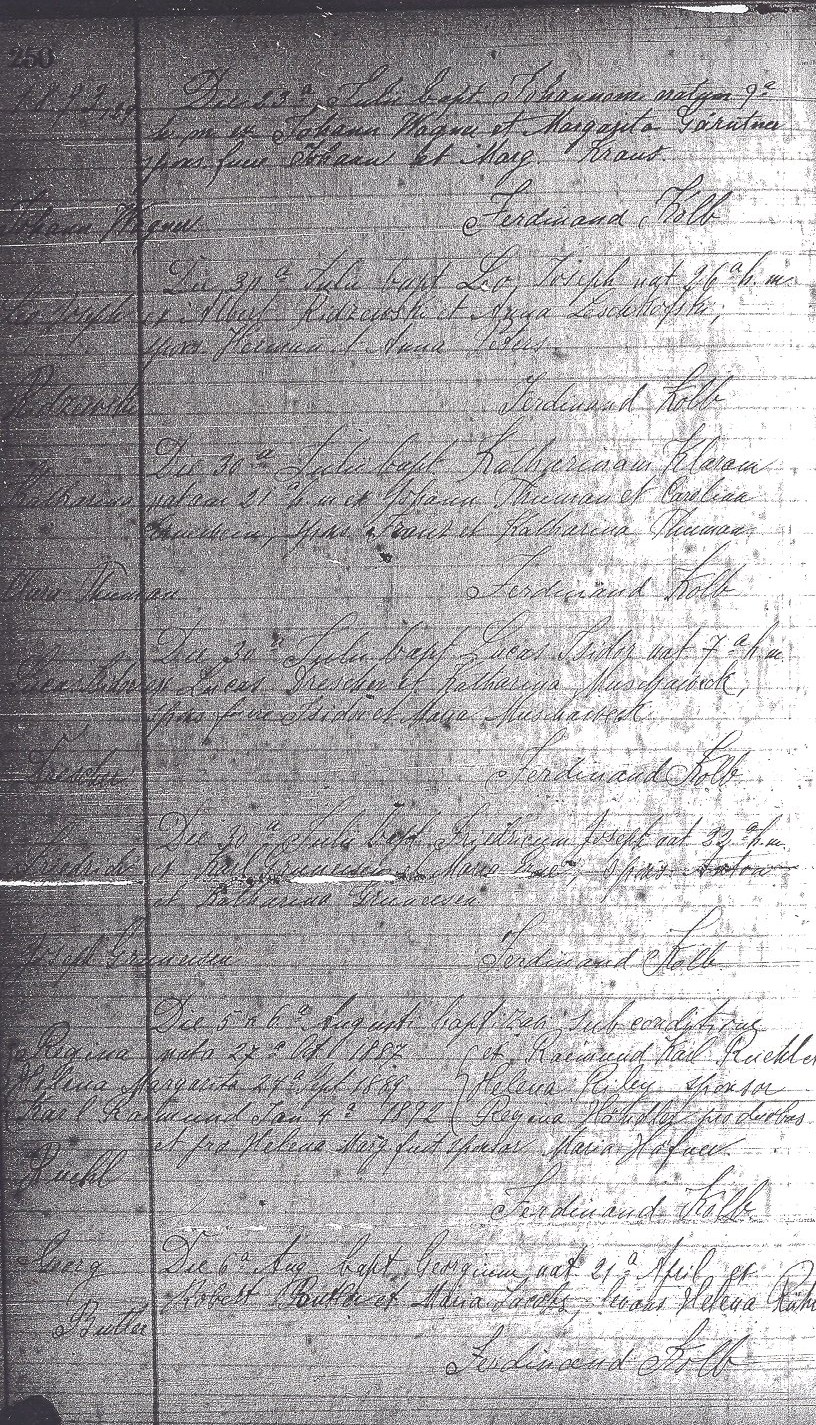 250
1892 Die 23ª Julii bapt. Johannem natum 9ª
h. m ex Johann Wagner et Margarita Gärtner
spons fuer Johann et Marg. Kraus.
Johann Wagner Ferdinand Kolb
Die 30ª Julii bapt Leo Joseph nat 26ª h. m.
Leo Joseph ex Albert Rudzewski et Anna
spons Herman et Anna
Ferdinand Kolb
Die 30ª Julii bapt Katharinam Klaram
Katharina natam 21ª h. m ex Johann Thuman et Carolina
spons Franz et Katharina Thuman
Clara Thuman Ferdinand Kolb
Die 30ª Julii bapt Lucas Isidor nat 7ª h. m
Lucas Isidor ex Lucas Drescher et Katharina Muschaweck,
spons fuer Isidor et Maria Muschaweck
Drescher Ferdinand Kolb
Die 30ª Julii bapt. Friedricum Joseph nat 22ª h. m.
Friedrich ex Karl et Maria spons Anton
et Katharina Gruneisen
Joseph Gruneisen Ferdinand Kolb
Die 5 & 6ª Augusti bapt sub conditione
Regina nata 27ª Oct 1887 ex Raimund Karl Ruehl et
Helena Margarita 24ª Sept 1889 Helena Riley sponsor
Karl Raimund Jan 4ª 1892 Regina pro duobus
et pro Helena Marg fuit sponsor Maria Hafner.
Ruehl
Ferdinand Kolb
Georg Die 6ª Aug bapt. Georgium nat 21ª April ex
Robert Butler et Maria Jacobs, Helena
Butler
Ferdinand Kolb